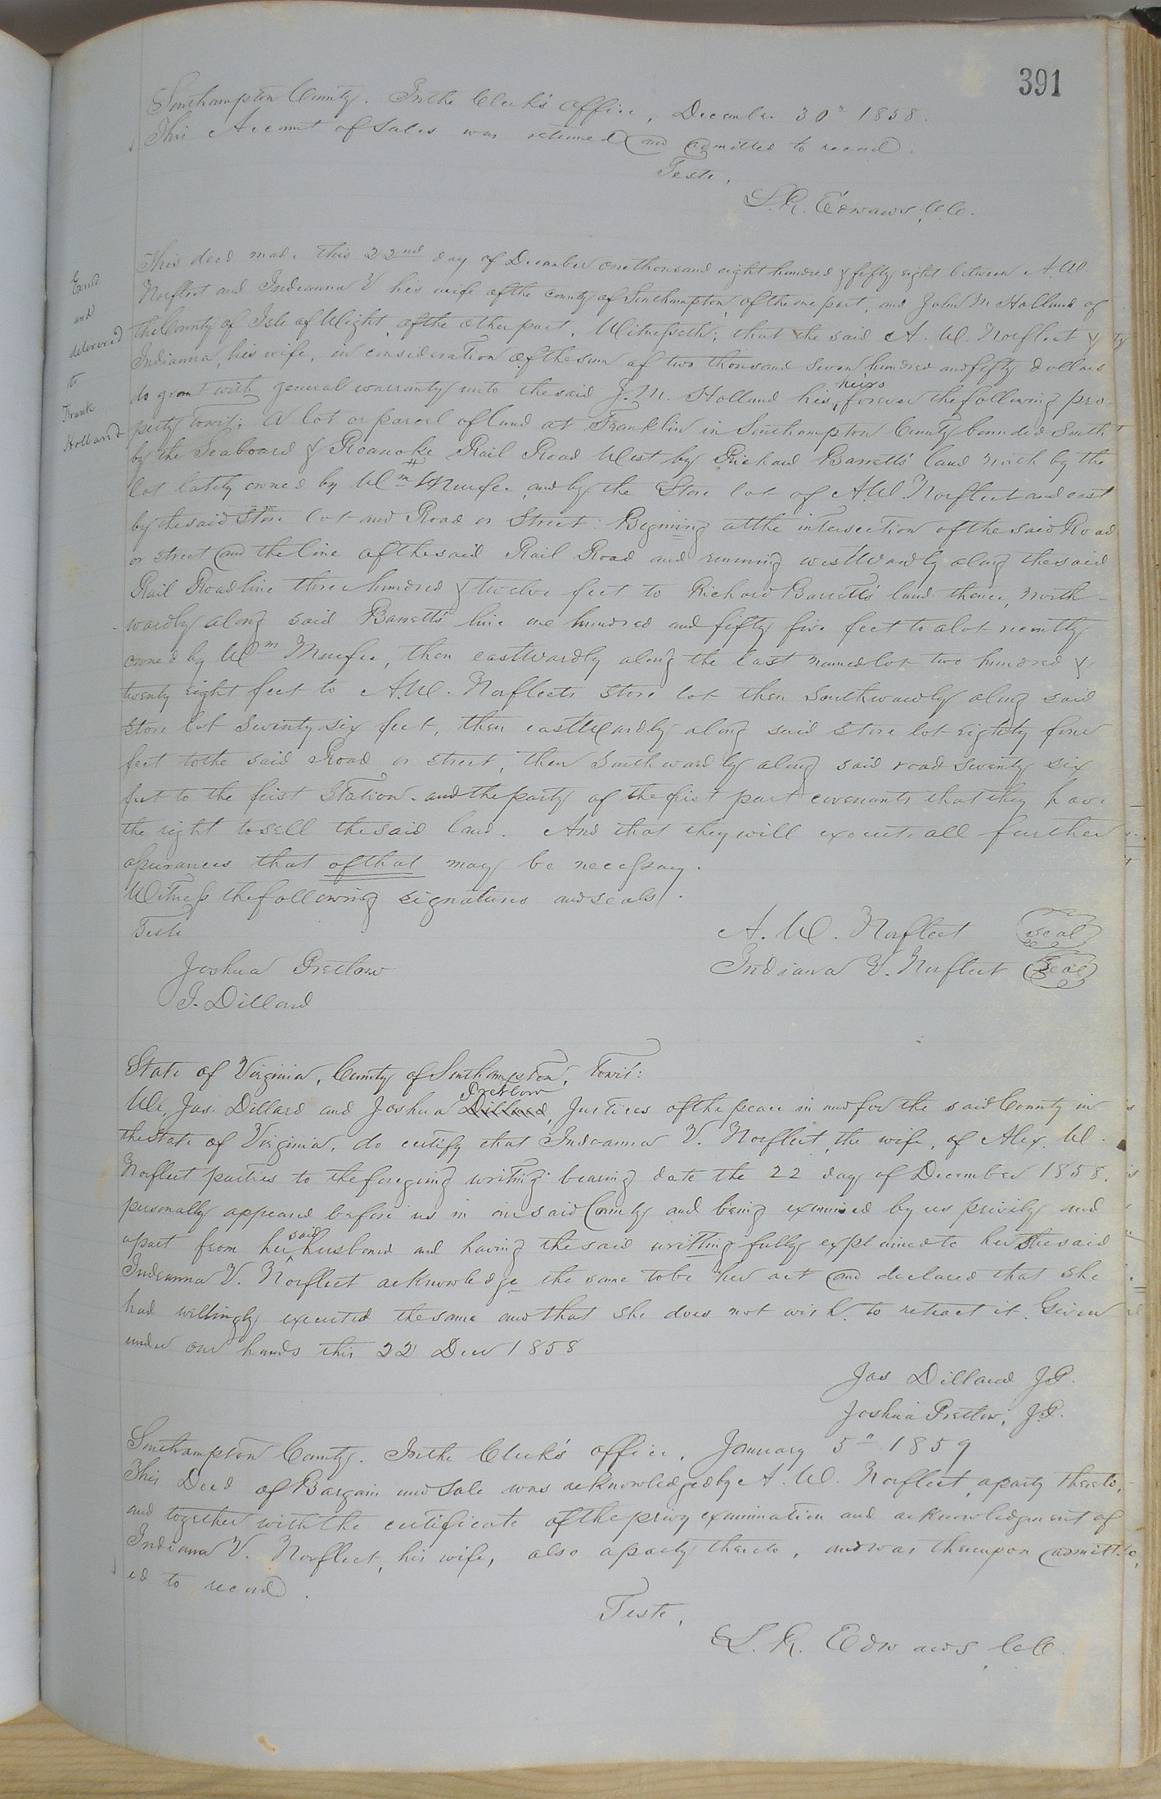 391
Southampton County. In the Clerk's Office, December 30" 1858.
This Account of Sales was returned and admitted to record.
Teste,
L. R. Edwards C.C.
Exand
and
delivered
to
Frank
Holland
This deed made this 22nd day of December one thousand eight hundred & fifty eight between A. W
Norfleet and Indianna V his wife of the county of Southampton, of the one part, and John M Holland of
the County of Isle of Wight, of the other part. Witnesseth; that the said A. W. Norfleet &
Indianna, his wife, in consideration of the sum of two thousand seven hundred and fifty dollars
do grant with general warranty unto the said J. M. Holland his heirs forever the following pro-
perty towit; A lot or parcel of land at Franklin in Southampton County bounded South
by the Seaboard & Roanoke Rail Road West by Richard Barretts' land north by the
lot lately owned by Wm Murfee and by the Store lot of A W Norfleet and east
by the said Store lot and Road or Street: Begining at the intersection of the said Road
or street and the line of the said Rail Road and running westwardly along the said
Rail Road line three hundred & twelve feet to Richard Barretts' land thence, north-
wardly along said Barretts' line one hundred and fifty five feet to a lot recently
owned by Wm Murfee, then eastwardly along the last named lot two hundred &
twenty eight feet to A. W. Norfleets store lot then southwardly along said
store lot seventy six feet, then eastwardly along said store lot eighty four
feet to the said Road or street, then southwardly along said road seventy six
feet to the first Station. and the party of the first part covenants that they have
the right to sell the said land. And that they will execute all further
assurances that of that may be necessary.
Witness the following signatures and seals.
Teste
A. W. Norfleet (Seal)
Joshua Pretlow
Indiana V. Norfleet (Seal)
J. Dillard
State of Virginia, County of Southampton, Towit:
We, Jas. Dillard and Joshua Dillard Pretlow, Justices of the peace in and for the said County in
the State of Virginia, do certify that Indeanna V. Norfleet, the wife, of Alex. W.
Norfleet parties to the foregoing writing bearing date the 22 day of December 1858.
personally appeared before us in our said County and being examined by us privily and
apart from her said husband and having the said writting fully explained to her she said
Indeanna V. Norfleet acknowledge the same to be her act and declared that she
had willingly executed the same and that she does not wish to retract it. Given
under our hands this 22 Dec 1858
Jas Dillard J.P.
Joshua Pretlow, J.P.
Southampton County. In the Clerk's office, January 5" 1859
This Deed of Bargain and Sale was acknowledged by A. W. Norfleet, a party thereto,
and together with the certificate of the privy examination and acknowledgment of
Indianna V. Norfleet, his wife, also a party thereto, and was thereupon admitt-
ed to record.
Teste,
L. R. Edwards C.C.